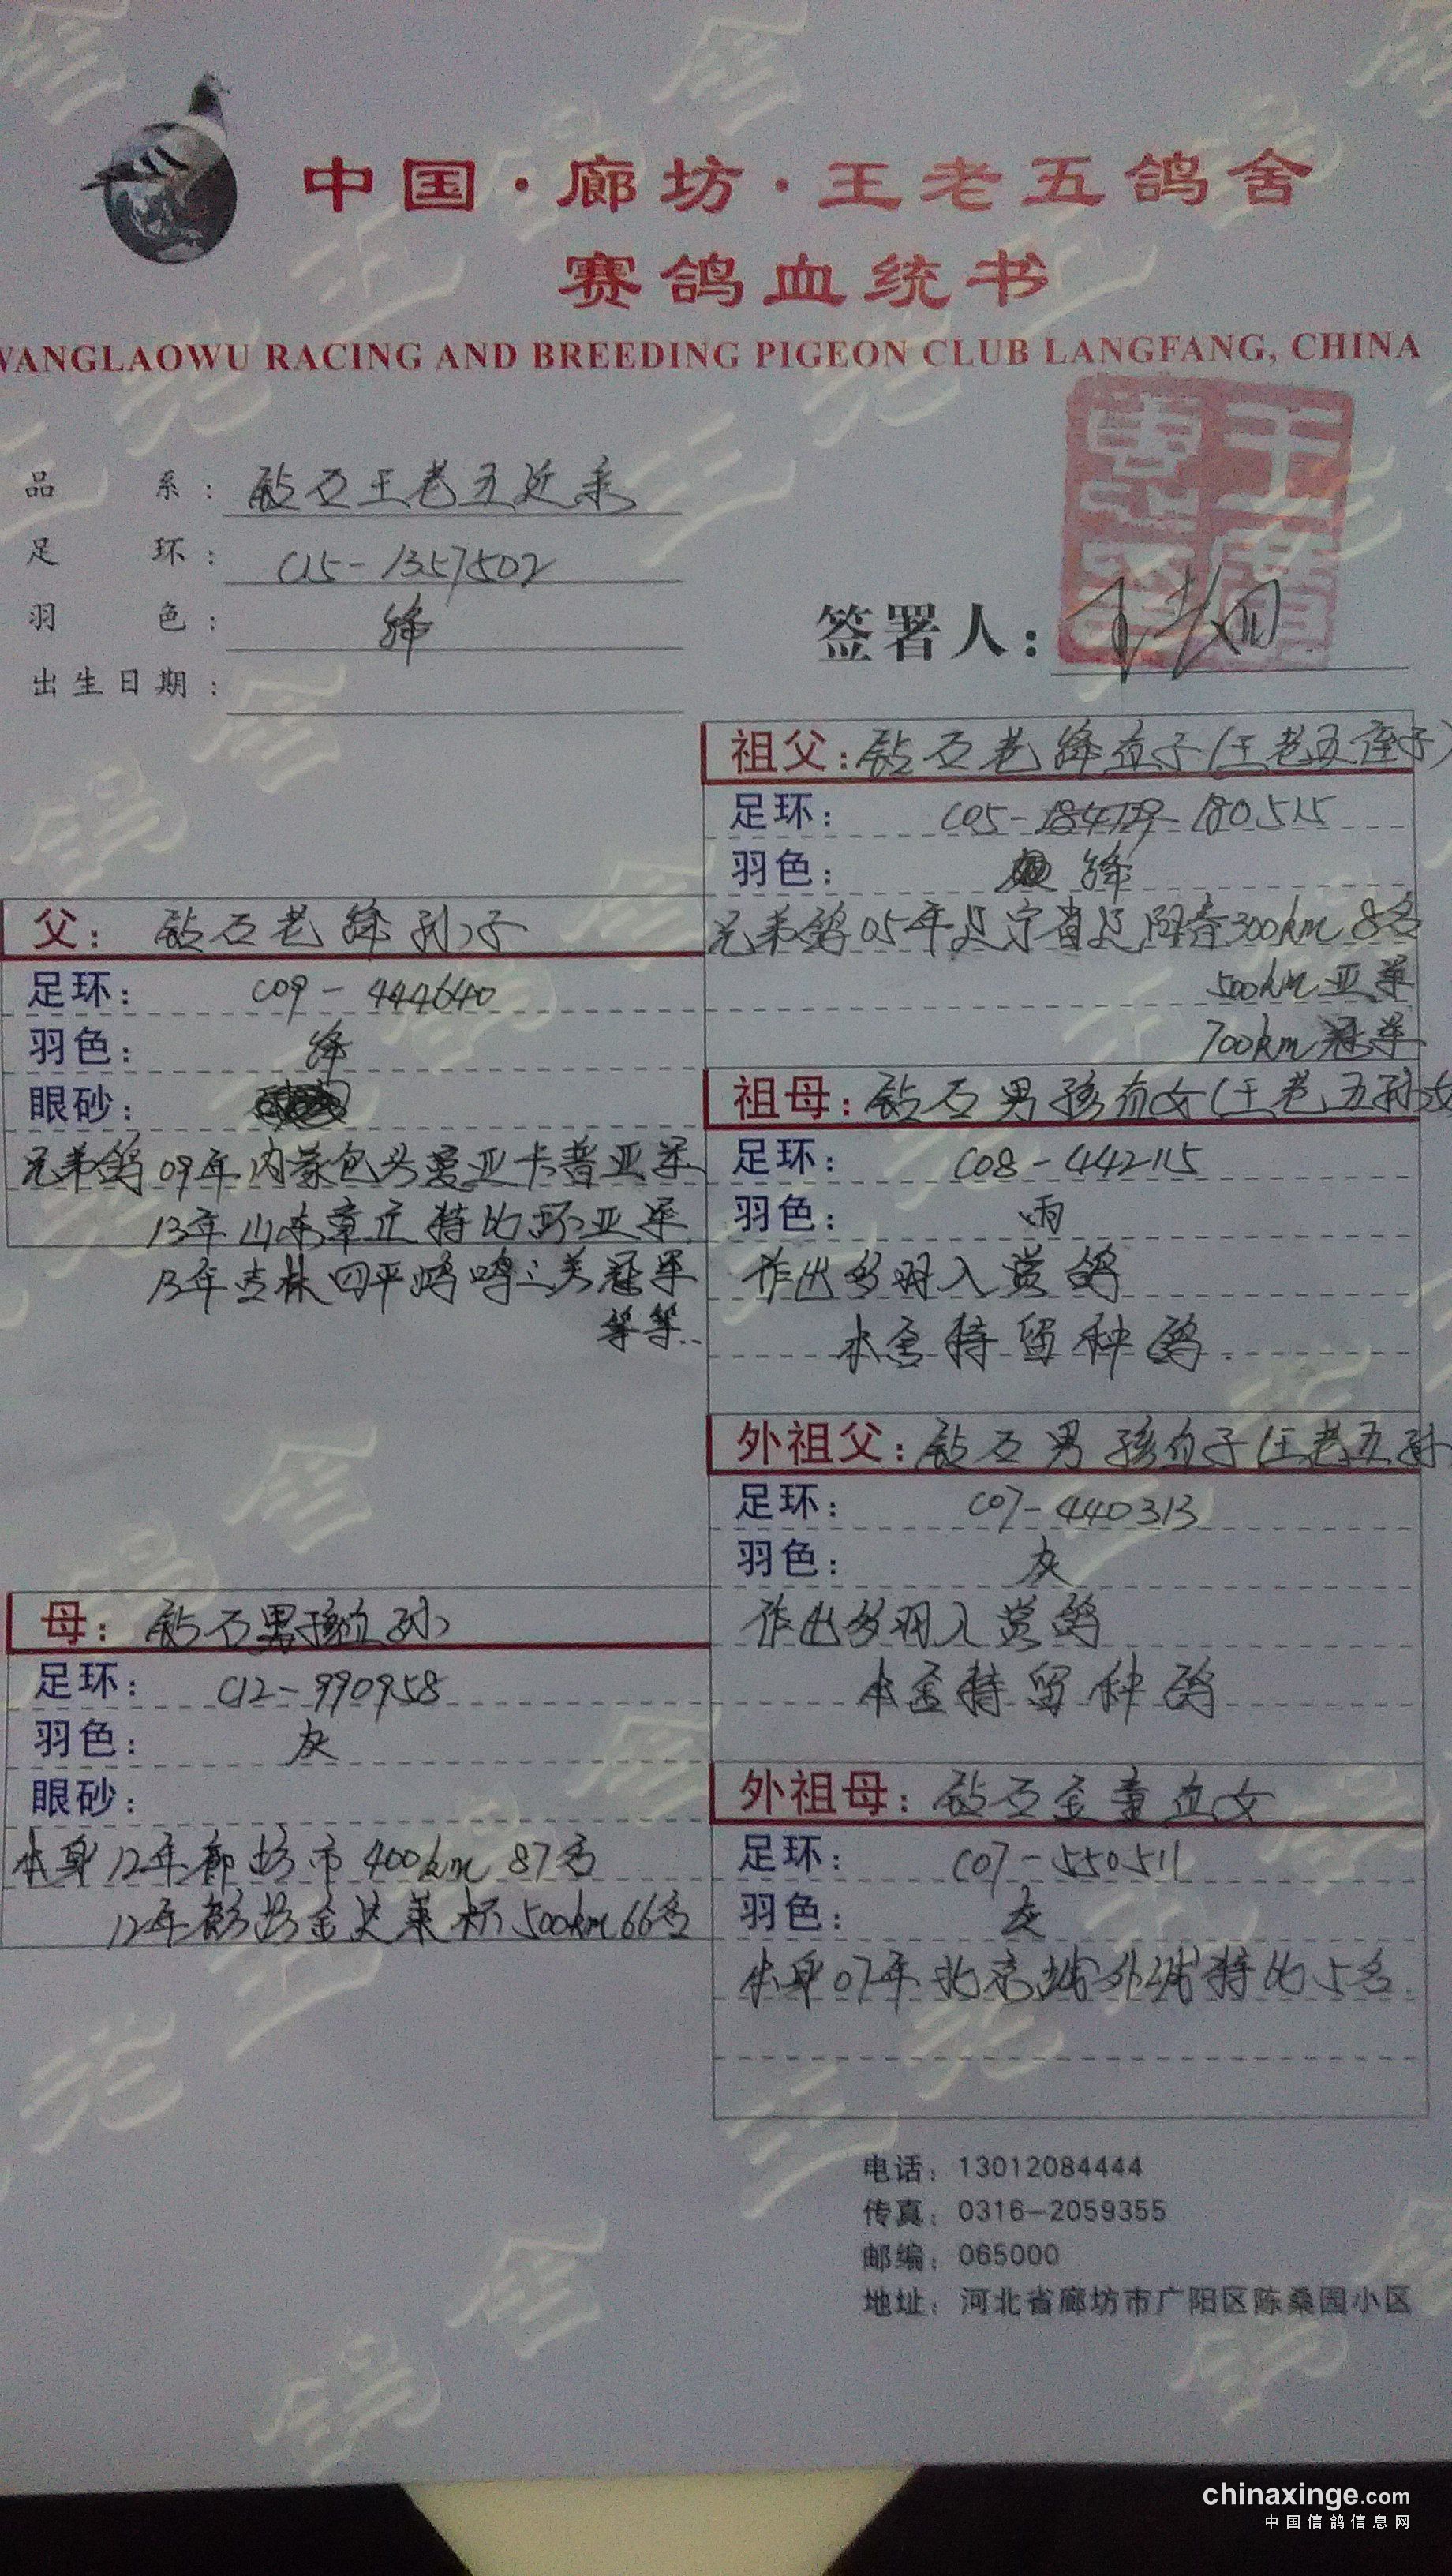 中国·廊坊·王老五鸽舍
赛鸽血统书
WANGLAOWU RACING AND BREEDING PIGEON CLUB LANGFANG, CHINA
品 系：钻石王老五近亲
足 环：C15-1357502
羽 色：绛
出生日期：
签署人：
祖父：钻石老绛直子(王老五侄子)
足环：C05-180515
羽色：绛
兄弟鸽05年辽宁省辽阳春300km 8名
500km亚军
700km冠军
父：钻石老绛孙子
足环：C09-444640
羽色：绛
眼砂：
兄弟鸽09年内蒙包头莫亚卡普亚军
13年山东章丘特比环亚军
13年吉林四平鸿鸣三关冠军
等等..
祖母：钻石男孩直女(王老五孙女
足环：C08-442115
羽色：雨
作出多羽入赏鸽
本舍特留种鸽.
外祖父：钻石男孩直子(王老五孙
足环：C07-440313
羽色：灰
作出多羽入赏鸽
本舍特留种鸽
母：钻石男孩直孙
足环：C12-990958
羽色：灰
眼砂：
本身12年廊坊市400km 87名
12年廊坊金达莱杯500km 66名
外祖母：钻石金童直女
足环：C07-550511
羽色：灰
本身07年北京城外城特比5名.
电话：13012084444
传真：0316-2059355
邮编：065000
地址：河北省廊坊市广阳区陈桑园小区
chinaxinge.com
中国信鸽信息网